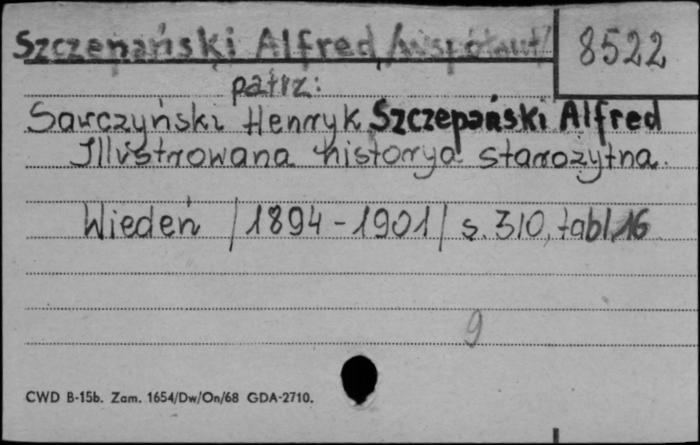 Szczepański Alfred /współaut/
8522
patrz:
Sarczyński Henryk, Szczepański Alfred
Illustrowana historya starożytna.
Wiedeń /1894-1901/ s. 310, tabl. 16
9
CWD B-15b. Zam. 1654/Dw/On/68 GDA-2710.